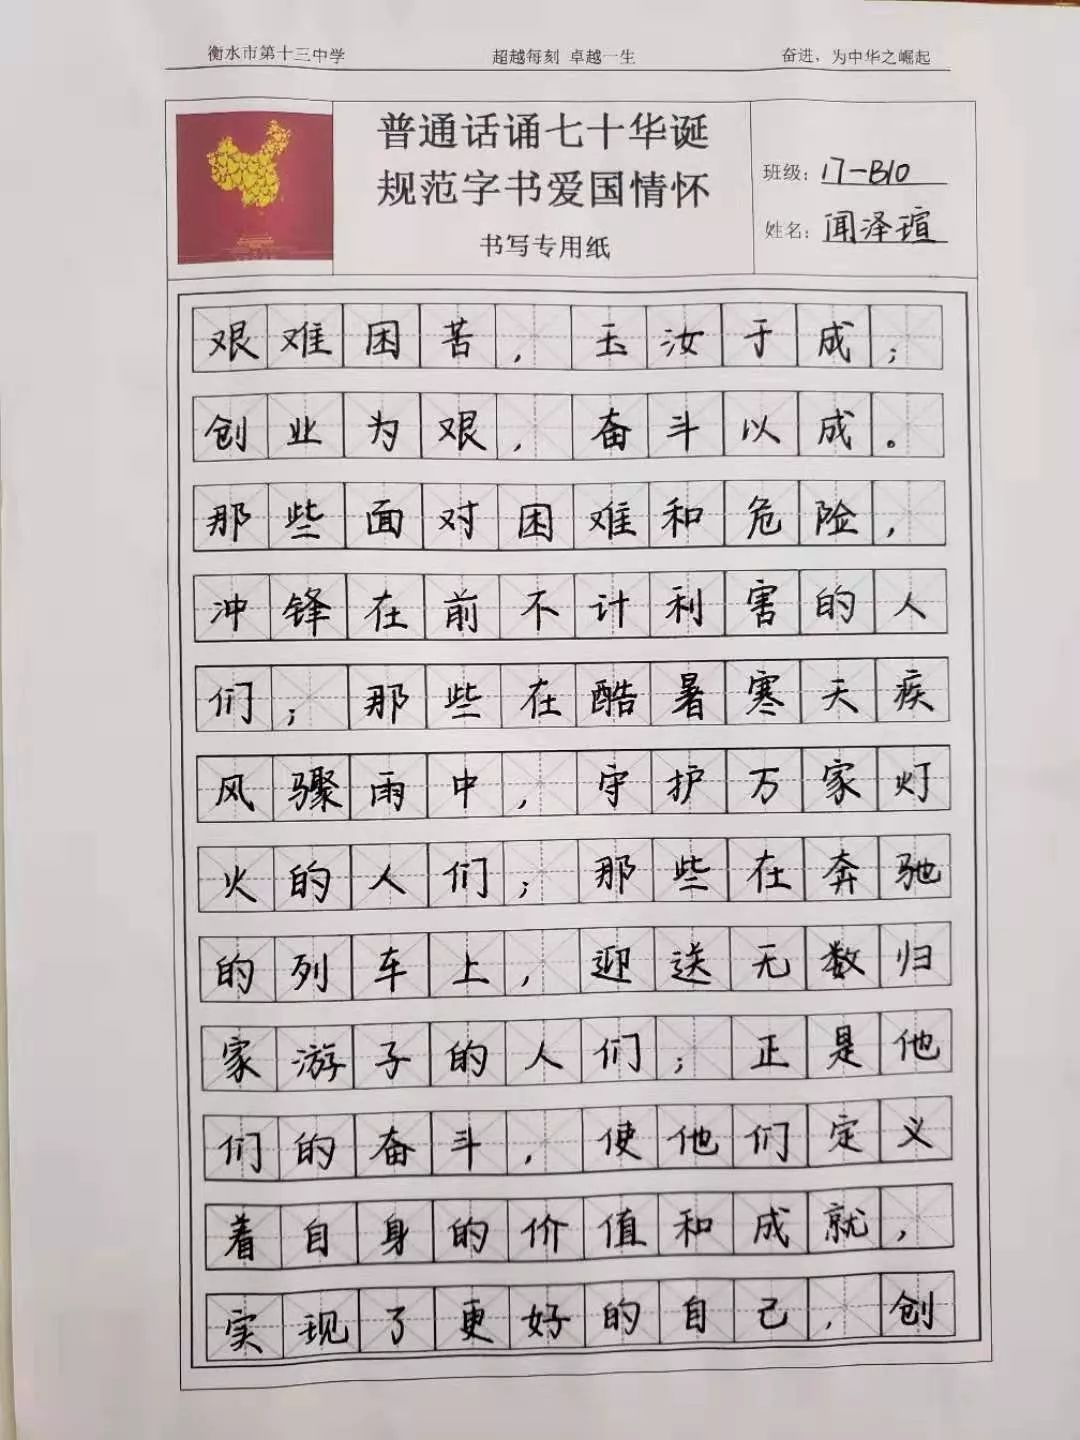 衡水市第十三中学 超越每刻 卓越一生 奋进，为中华之崛起
普通话诵七十华诞
规范字书爱国情怀
书写专用纸
班级：17-B10
姓名：闻泽瑄
艰难困苦，玉汝于成；
创业为艰，奋斗以成。
那些面对困难和危险，
冲锋在前不计利害的人
们；那些在酷暑寒天疾
风骤雨中，守护万家灯
火的人们；那些在奔驰
的列车上，迎送无数归
家游子的人们；正是他
们的奋斗，使他们定义
着自身的价值和成就，
实现了更好的自己，创